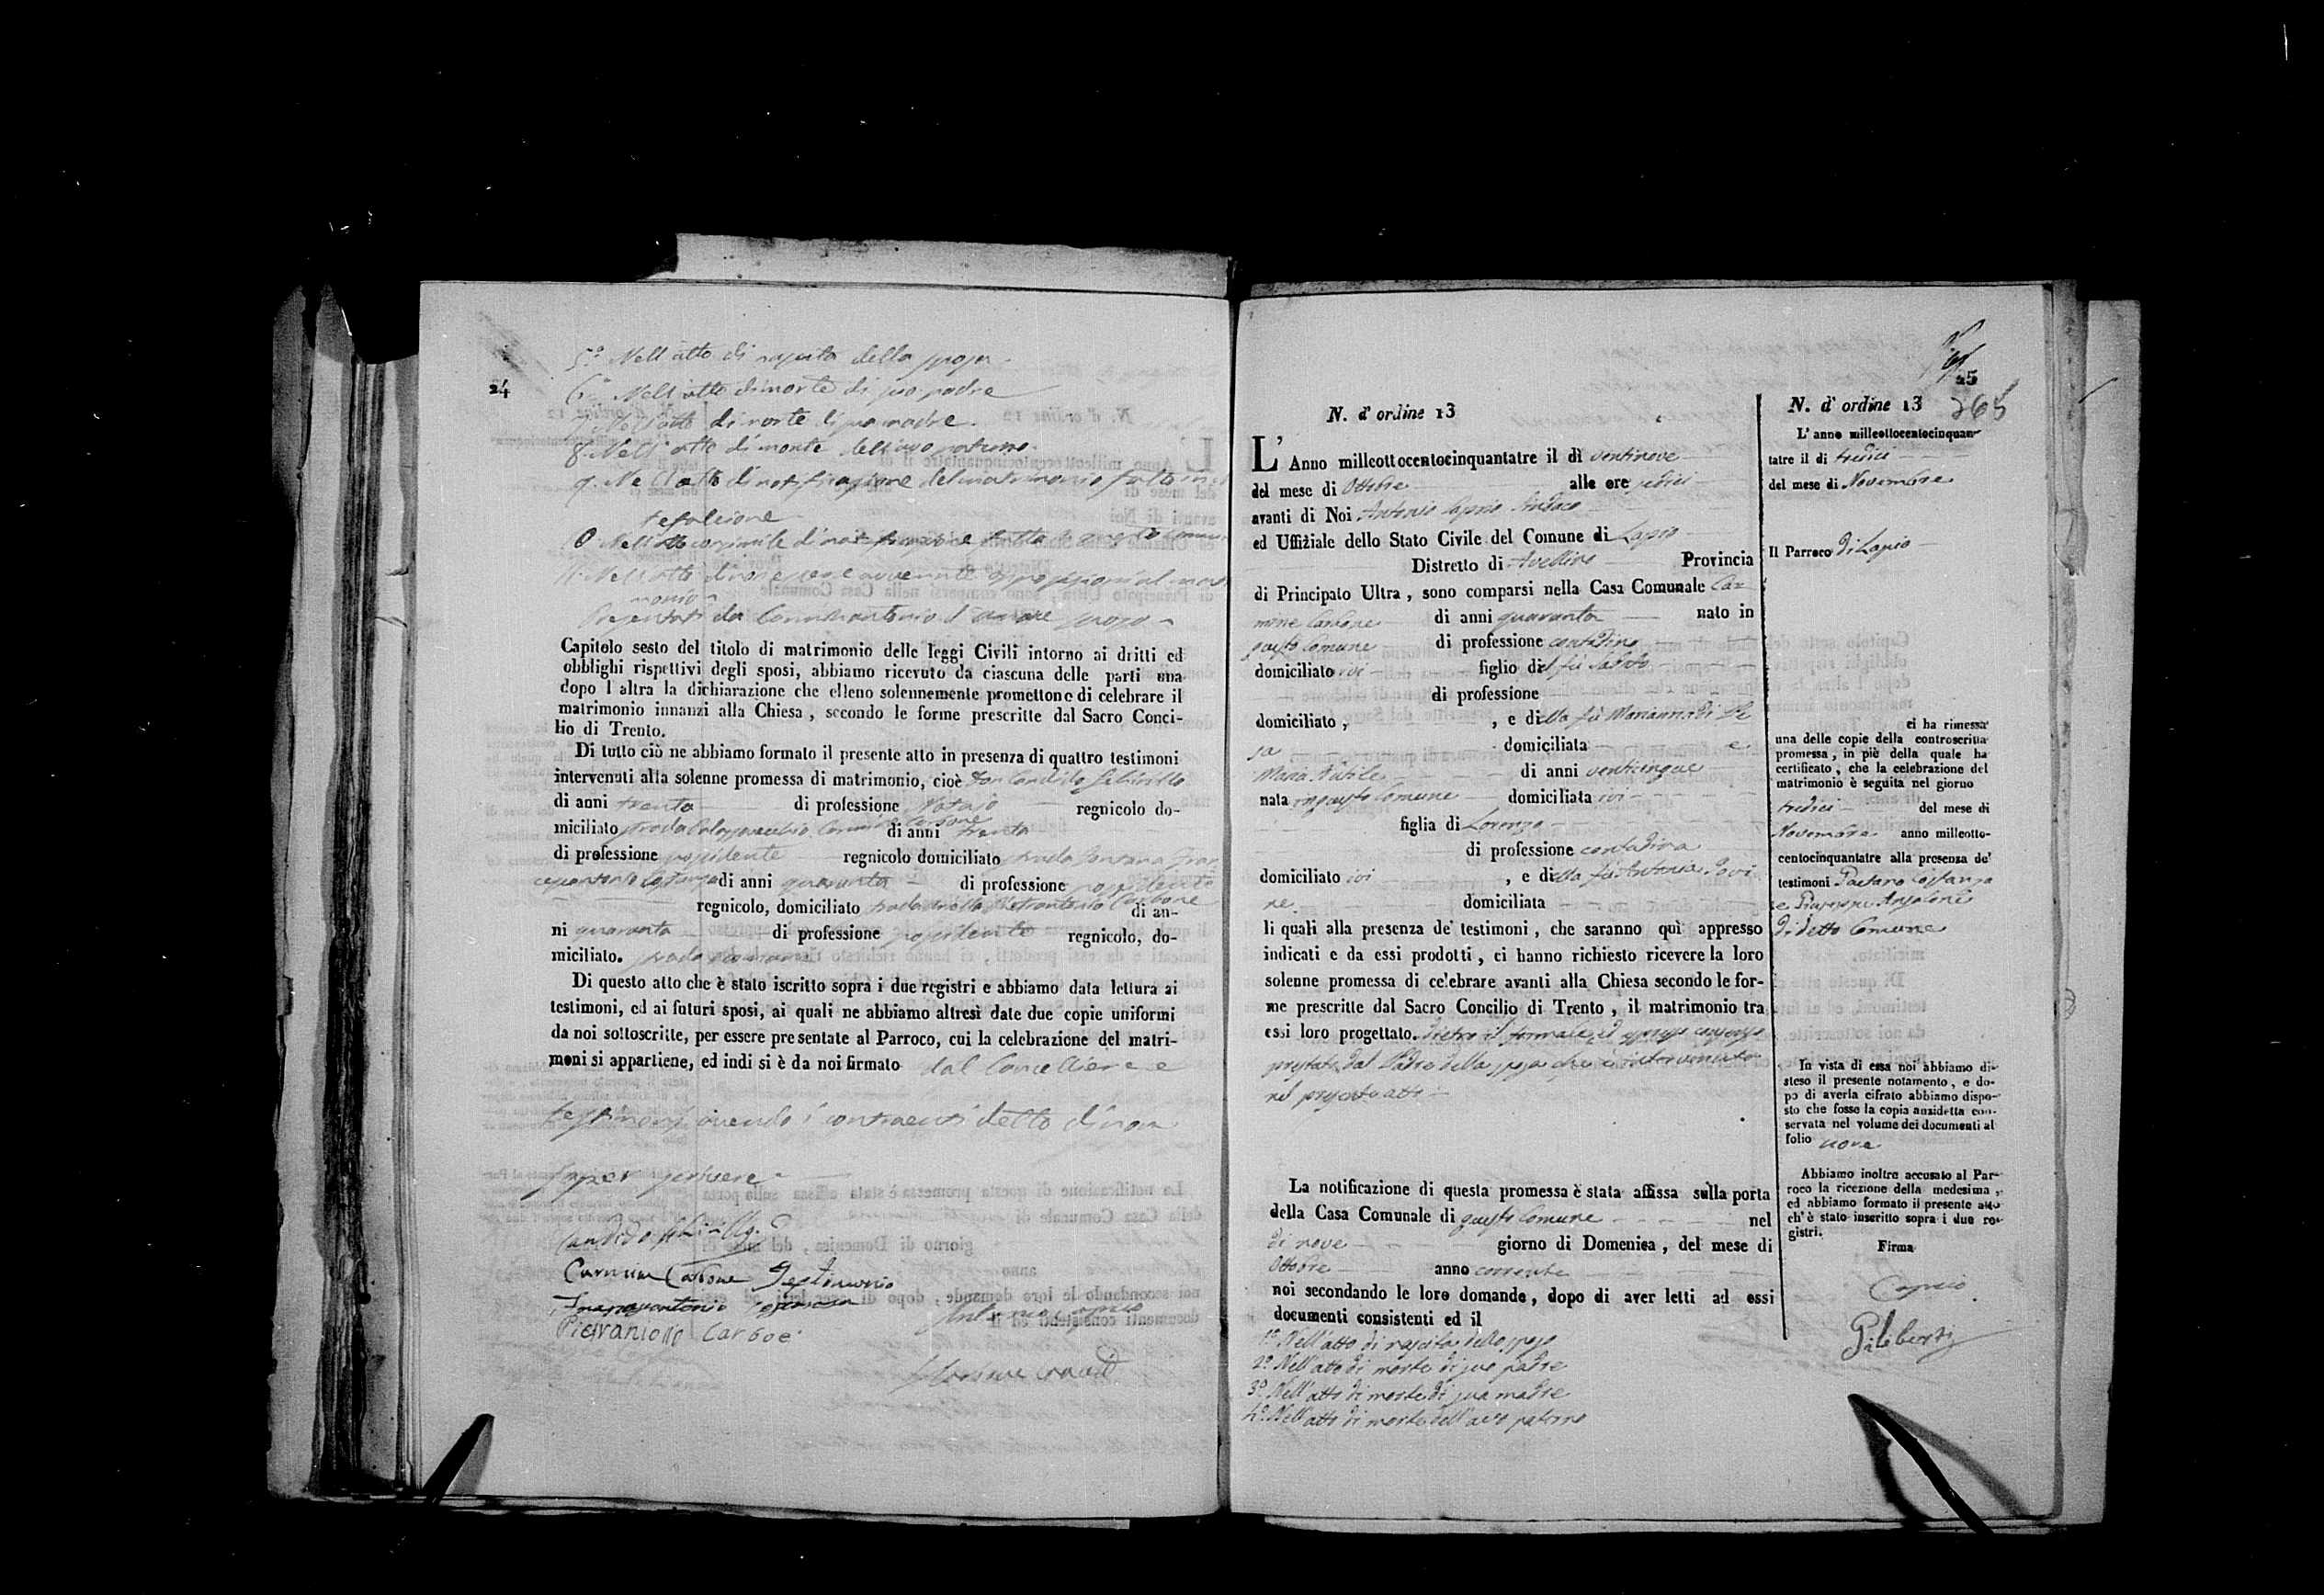 24
5.° Nell'atto di nascita della sposa
6.° Nell'atto di morte di suo padre
7. Nell'atto di morte di sua madre.
8. Nell'atto di morte dell'avo paterno.
9. Nell'atto di notificazione del matrimonio fatto in
10 Nell'atto consimile di notificazione fatto in questo Comune
11. Nell'atto di non essere avvenute opposizioni al matri
monio
Presentati da
sposo
Capitolo sesto del titolo di matrimonio delle leggi Civili intorno ai dritti ed
obblighi rispettivi degli sposi, abbiamo ricevuto da ciascuna delle parti una
dopo l altra la dichiarazione che elleno solennemente promettono di celebrare il
matrimonio innanzi alla Chiesa, secondo le forme prescritte dal Sacro Conci-
lio di Trento.
Di tutto ciò ne abbiamo formato il presente atto in presenza di quattro testimoni
intervenuti alla solenne promessa di matrimonio, cioè Don Candido
di anni trenta di professione Notajo regnicolo do-
miciliato strada Carmine Carbone di anni trenta
di professione possidente regnicolo domiciliato strada Fontana Fran
cescantonio Costanza di anni quaranta di professione possidente
regnicolo, domiciliato strada Pietrantonio Carbone di an-
ni quaranta di professione possidente regnicolo, do-
miciliato. strada
Di questo atto che è stato iscritto sopra i due registri e abbiamo data lettura ai
testimoni, ed ai futuri sposi, ai quali ne abbiamo altresì date due copie uniformi
da noi sottoscritte, per essere presentate al Parroco, cui la celebrazione del matri-
moni si appartiene, ed indi si è da noi firmato dal Cancelliere e
testimonj avendo i contraenti detto di non
saper scrivere
Candido
Carmine Carbone Testimonio
Francescantonio Costanza
Antonio Caprio
Pietrantonio Carbone
25
265
N. d' ordine 13
L' Anno millecottocentocinquantatre il dì ventinove
del mese di Ottobre alle ore sedici
avanti di Noi Antonio Caprio Sindaco
ed Uffiziale dello Stato Civile del Comune di Lapio
Distretto di Avellino Provincia
di Principato Ultra, sono comparsi nella Casa Comunale Car
mine Carbone di anni quaranta nato in
questo Comune di professione contadino
domiciliato ivi figlio del fù Sabato
di professione
domiciliato, , e della fù Marianna di Le
domiciliata e
Maria di anni venticinque
nata in questo Comune domiciliata ivi
figlia di Lorenzo
di professione contadina
domiciliato ivi , e della fù Antonia Iovi
ne domiciliata
li quali alla presenza de' testimoni, che saranno quì appresso
indicati e da essi prodotti, ci hanno richiesto ricevere la loro
solenne promessa di celebrare avanti alla Chiesa secondo le for-
me prescritte dal Sacro Concilio di Trento, il matrimonio tra
essi loro progettato. dietro il formale, ed espresso consenso
prestato dal Padre della sposa che è intervenuto
nel presente atto
La notificazione di questa promessa è stata affissa sulla porta
della Casa Comunale di questo Comune nel
dì nove giorno di Domenica, del mese di
Ottobre anno corrente
noi secondando le loro domande, dopo di aver letti ad essi
documenti consistenti ed il
1.° Nell'atto di nascita dello sposo
2.° Nell'atto di morte di suo padre
3.° Nell'atto di morte di sua madre
4.° Nell'atto di morte dell'avo paterno
N. d' ordine 13
L' anno milleottocentocinquan-
tatre il dì tredici
del mese di Novembre
Il Parroco di Lapio
ci ha rimessa
una delle copie della controscritta
promessa, in piè della quale ha
certificato, che la celebrazione del
matrimonio è seguita nel giorno
tredici del mese di
Novembre anno milleotto-
centocinquantatre alla presenza de'
testimoni Gaetano Costanza
e Giuseppe
di detto Comune
In vista di essa noi abbiamo di-
steso il presente notamento, e do-
po di averla cifrato abbiamo dispo-
sto che fosse la copia anzidetta con-
servata nel volume dei documenti al
folio nove
Abbiamo inoltre accusato al Par-
roco la ricezione della medesima,
ed abbiamo formato il presente atto
ch' è stato inscritto sopra i due re-
gistri.
Firma
Caprio
Giliberti